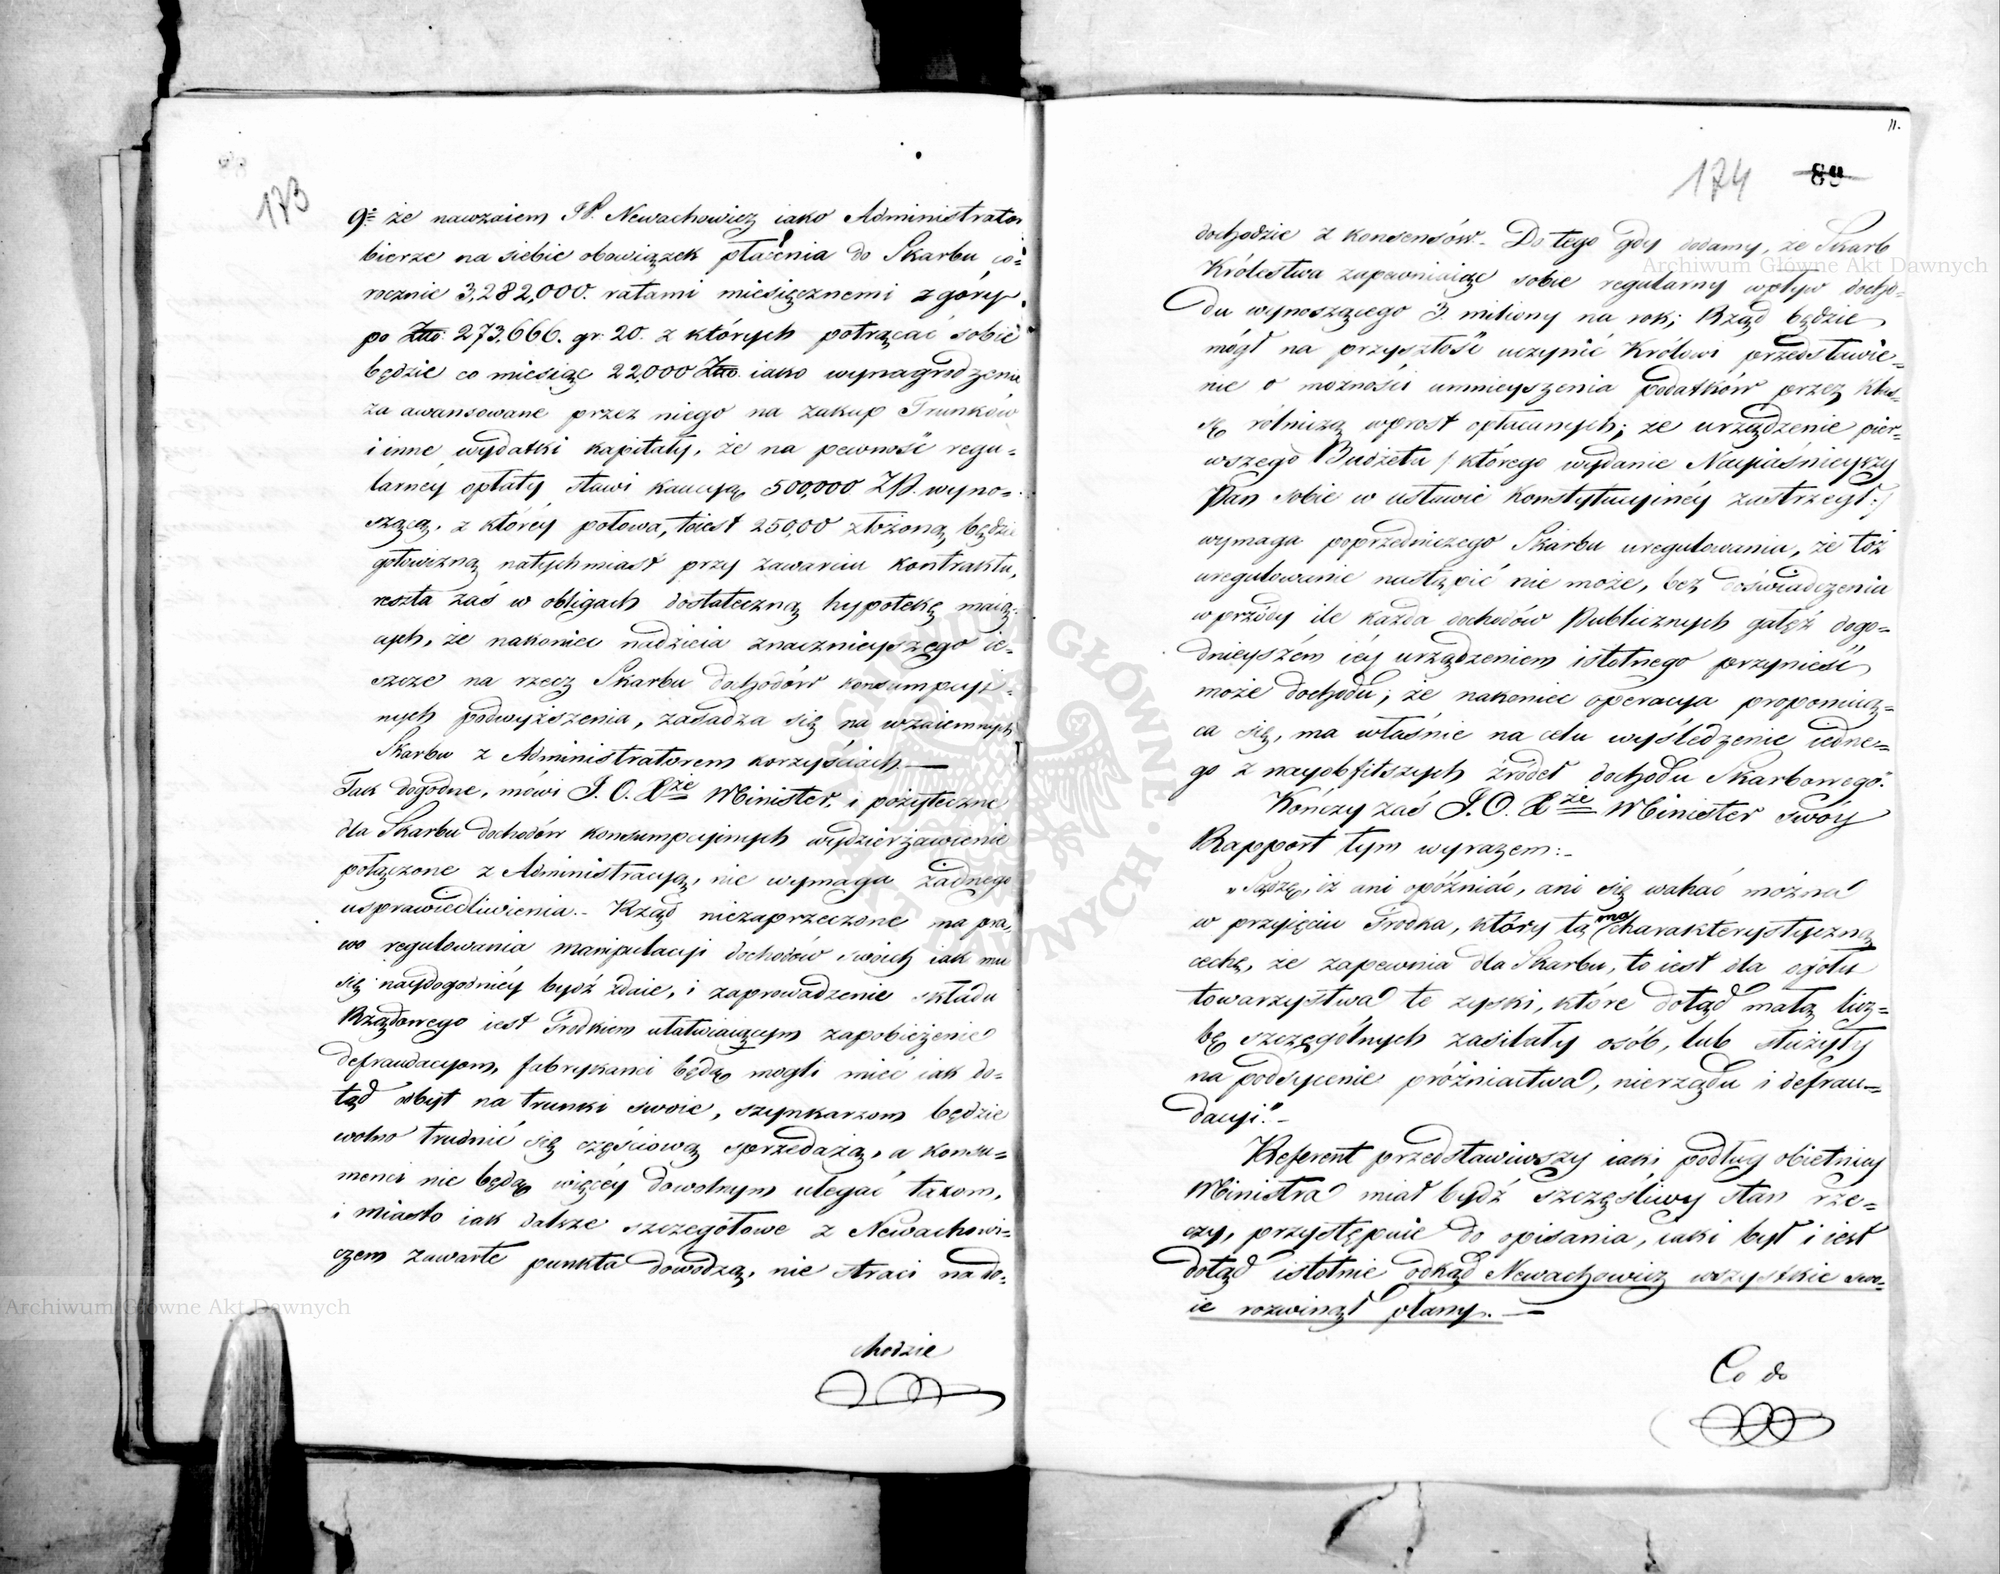 173
9° że nawzaiem JP. Newachowicz iako Administrator
bierze na siebie obowiązek płacenia do Skarbu co-
rocznie 3,282,000. ratami miesięcznemi z góry.
po Złło. 273,666. gr. 20. z których potrącać sobie
będzie co miesiąc 22,000 Złło. iako wynagrodzenie
za awansowane przez niego na zakup Trunków
i inne wydatki kapitały, że na pewność regu-
larnéy opłaty stawi kaucyą 500,000 Złp. wyno-
szącą, z któréy połowa, toiest 250,00 złożoną będzie
gotowizną natychmiast przy zawarciu kontraktu,
reszta zaś w obligach dostateczną hypotekę maią-
cych, że nakoniec nadzieia znacznieyszego ie-
szcze na rzecz Skarbu dochodów konsumpcyi-
nych podwyższenia, zasadza się na wzaiemnych
Skarbu z Administratorem korzyściach.—
Tak dogodne, mówi J. O. Xże Minister, i pożyteczne
dla Skarbu dochodów konsumpcyinych wydzierżawienie
połączone z Administracyą, nie wymaga żadnego
usprawiedliwienia.- Rząd niezaprzeczone ma pra-
wo regulowania manipulacyi dochodów swoich iak mu
się naydogodniéy bydź zdaie, i zaprowadzenie składu
Rządowego iest środkiem ułatwiaiącym zapobieżenie
defraudacyom, fabrykanci będą mogli mieć iak do-
tąd odbyt na trunki swoie, szynkarzom będzie
wolno trudnić się częściową sprzedażą, a konsu-
menci nie będą więcéy dowolnym ulegać taxom,
i miasto iak dalsze szczegółowe z Newachowi-
czem zawarte punkta dowodzą, nie straci na do-
chodzie
11.
174 89
dochodzie z konsensów.- Do tego gdy dodamy, że Skarb
Królestwa zapewniaiąc sobie regularny wpływ docho-
du wynoszącego 3 miliony na rok; Rząd będzie
mógł na przyszłość uczynić Królowi przedstawie-
nie o możności umnieyszenia podatków przez klas-
sę rólniczą wprost opłacanych; że urządzenie pier-
wszego Budżetu /: którego wydanie Nayiaśnieyszy
Pan sobie w ustawie konstytucyinéy zastrzegł :/
wymaga poprzedniczego Skarbu uregulowania, że toż
uregulowanie nastąpić nie może, bez doświadczenia
wprzódy ile każda dochodów Publicznych gałęź dogo-
dnieyszém iéy urządzeniem istotnego przynieść
może dochodu; że nakoniec operacya proponuią-
ca się, ma właśnie na celu wyśledzenie iedne-
go z nayobfitszych źródeł dochodu Skarbowego."
Kończy zaś J. O. Xże Minister swóy
Rapport tym wyrazem:-
„Sądzę, iż ani opóźniać, ani się wahać można
w przyięciu środka, który tą ma charakterystyczną
cechę, że zapewnia dla Skarbu, to iest dla ogółu
towarzystwa te zyski, które dotąd małą licz-
bę szczególnych zasilały osób, lub służyły
na podsycenie próżniactwa, nierządu i defrau-
dacyi."-
Referent przedstawiwszy iaki podług obietnicy
Ministra miał bydź szczęśliwy stan rze-
czy, przystępuie do opisania, iaki był i iest
dotąd istotnie odkąd Newachowicz wszystkie swo-
ie rozwinął plany.—
Co do
Archiwum Główne Akt Dawnych
Archiwum Główne Akt Dawnych
ARCHIWUM GŁÓWNE AKT DAWNYCH